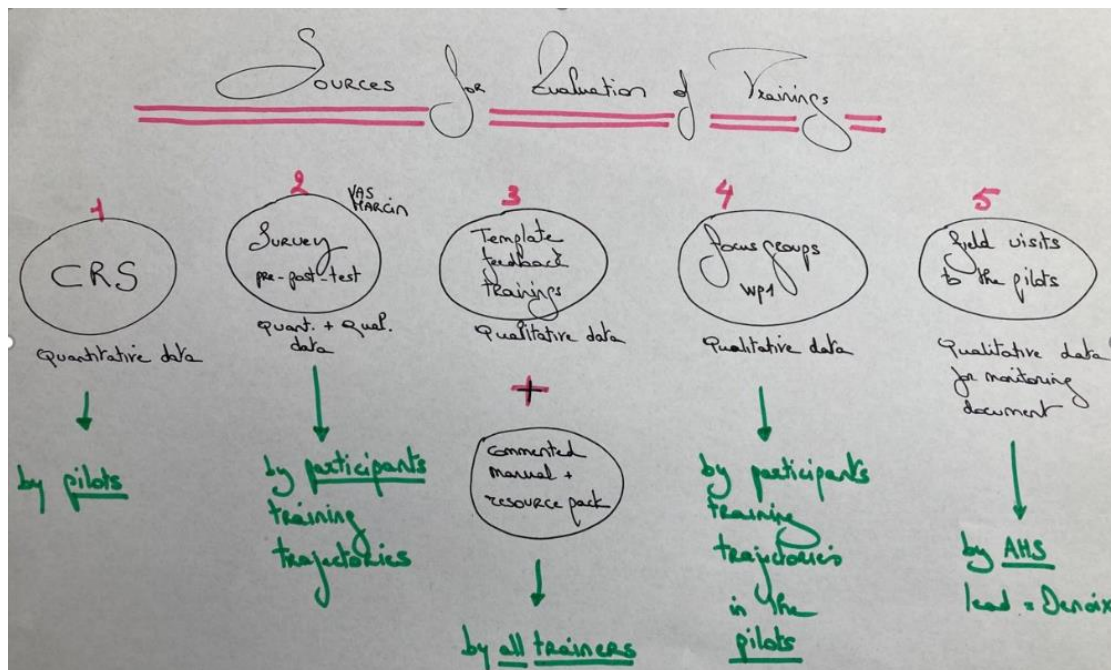 Sources for Evaluation of Trainings
1
CRS
Quantitative data
by pilots
2
VAS
MARCIN
Survey
pre-post-test
Quant. + Qual.
data
by participants
training
trajectories
3
Template
feedback
trainings
Qualitative data
+
commented
manual +
resource pack
by all trainers
4
focus groups
WP1
Qualitative data
by participants
training
trajectories
in the
pilots
5
field visits
to the pilots
Qualitative data
for monitoring
document
by AHS
lead = Denoix